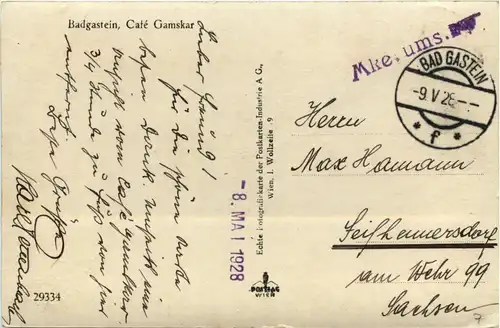 Badgastein, Café Gamskar
Lieber Freund!
für die schöne Karte
besten Dank.
vom Café Gamskar
3/4 Stunde zu Fuß von hier
entfernt. Beste Grüße
29334
- 8. MAI 1928
Echte Fotografiekarte der Postkarten-Industrie A G.,
Wien, I. Wollzeile 9
POSTIAG
WIEN
Mke. ums.
BAD GASTEIN
-9.V 28-
* f *
Herrn
Max Hamann
Seifhennersdorf
am Wehr 99
Sachsen
7